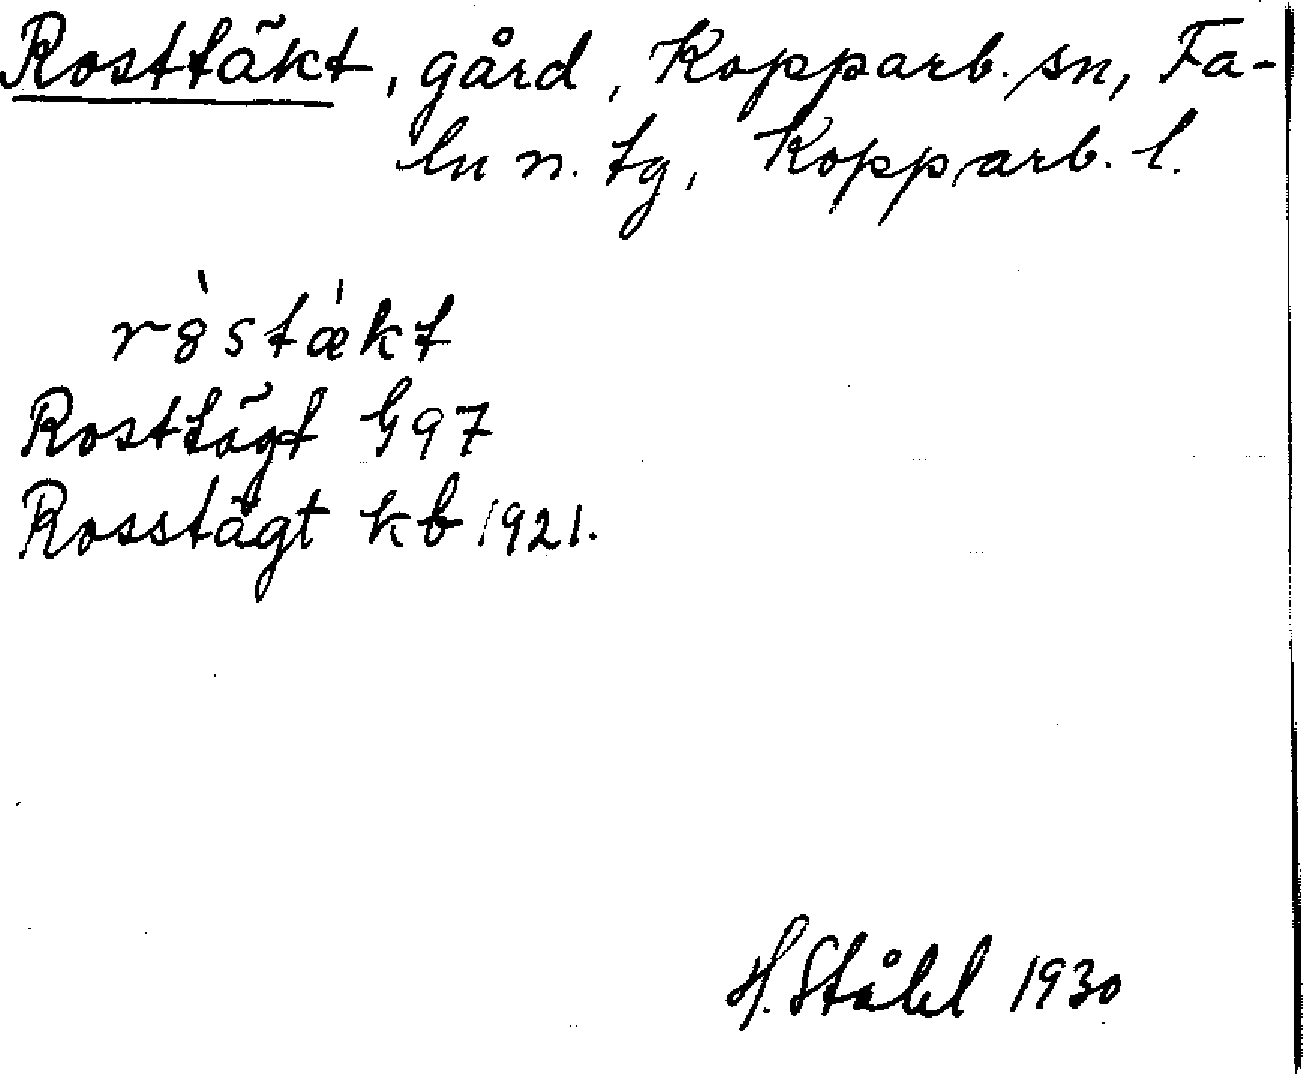 Rosttäkt, gård, Kopparb. sn, Fa-
lu n. tg, Kopparb. l.
ròstǽkt
Rosttägt G 97
Rosstägt kb 1921.
H. Ståhl 1930